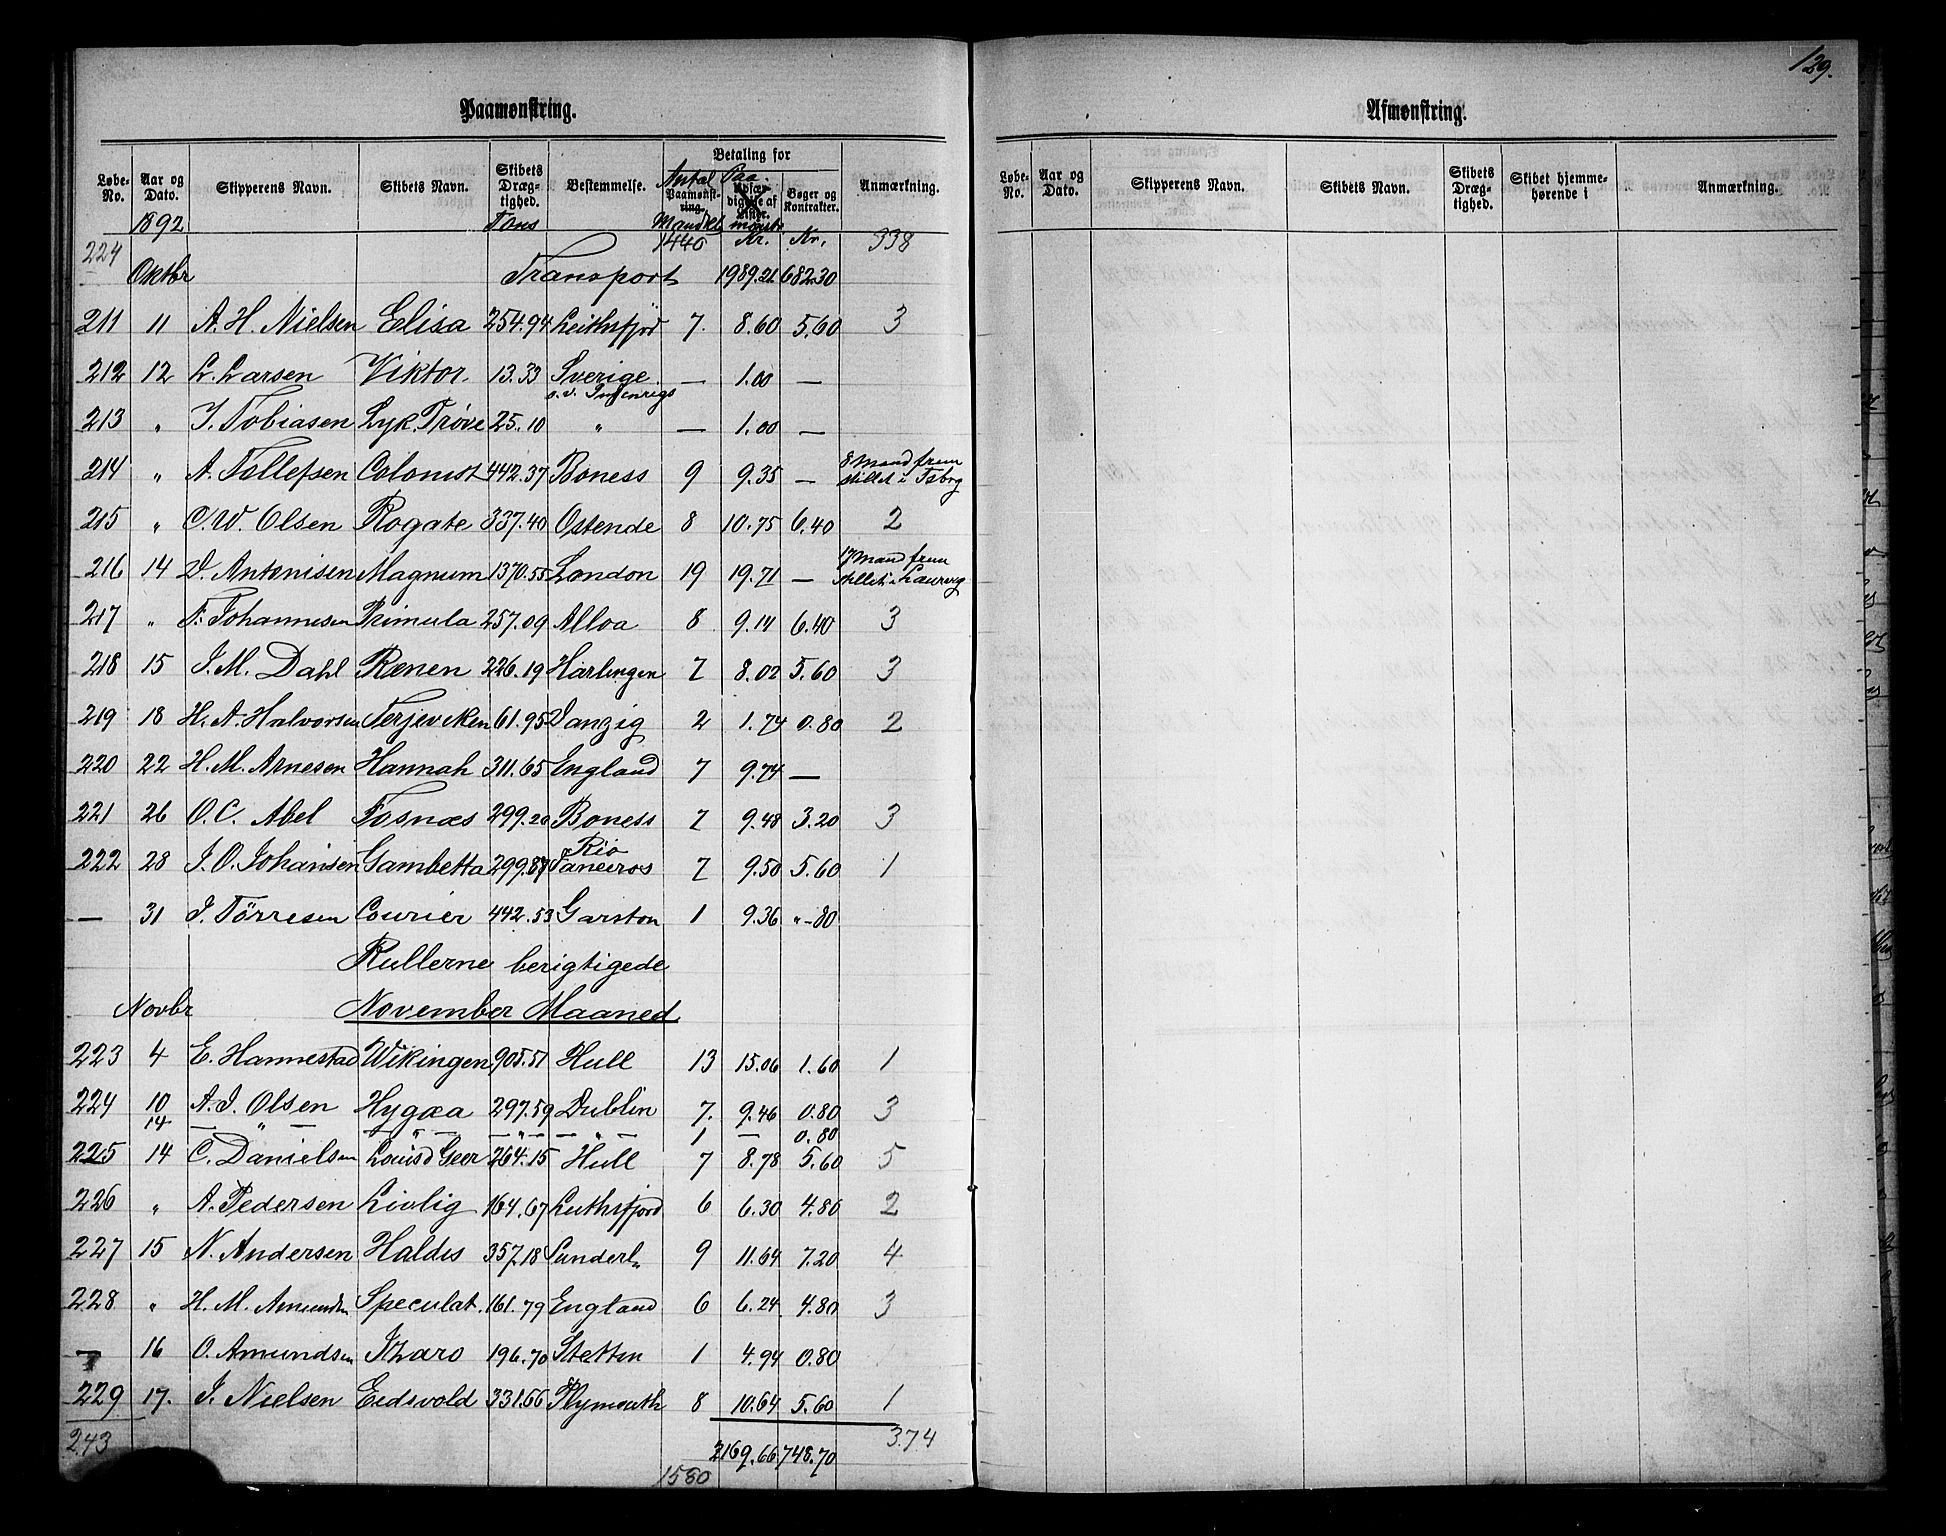 129.
Paamønstring.
Løbe-No. Aar og Dato. Skipperens Navn. Skibets Navn. Skibets Dræg-tighed. Bestemmelse. Betaling for Antal Paamønst-ring. Mandskb Paa- mønstr Bøger og Kontrakter. Anmærkning.
1892 Tons 1440 Kr. Kr. 338
224
Oktbr Transport 1989.21 682.30
211 11 A. H. Nielsen Elisa 254.94 Leithsfjord 7. 8.60 5.60 3
212 12 L. Larsen Viktor. 13.33 Sverige — 1.00 —
o. v. Indenrigs
213 " J. Tobiasen Lyk. Prøve 25.10 " — 1.00 —
214 " A. Tollefsen Colonist 442.37 Boness 9 9.35 — 8 Mand frem stillet i Tsbrg
215 " C. W. Olsen Rogate 337.40 Ostende 8 10.75 6.40 2
216 14 D. Antonisen Magnum 1370.55 London 19 19.71 — 17 Mand frem stillet i Laurvig
217 " F. Johannesen Primula 257.09 Alloa 8 9.14 6.40 3
218 15 J. M. Dahl Rænen 226.19 Harlingen 7 8.02 5.60 3
219 18 H. A. Halvorsen Terjeviken 61.95 Danzig 2 1.74 0.80 2
220 22 H. M. Arnesen Hannah 311.65 England 7 9.74 —
221 26 O. C. Abel Fosnæs 299.20 Boness 7 9.48 3.20 3
222 28 J. O. Johansen Gambetta 299.87 Rio Janeiros 7 9.50 5.60 1
— 31 J. Tørresen Courier 442.53 Garston 1 9.36 "-80
Rullerne berigtigede
Novbr November Maaned
223 4 E. Hannestad Wikingen 905.51 Hull 13 15.06 1.60 1
224 10 A. J. Olsen Hygæa 297.59 Dublin 7. 9.46 0.80 3
14 — " — — " — — " — — " — 1 — 0.80
225 14 C. Danielsen Louis d Geer 264.15 Hull 7 8.78 5.60 5
226 " A. Pedersen Livlig 164.67 Leithsfjord 6 6.30 4.80 2
227 15 N. Andersen Haldis 357.18 Sunderln 9 11.64 7.20 4
228 " H. M. Amundsn Speculat. 161.79 England 6 6.24 4.80 3
— 16 O. Amundsen Izaro 196.70 Stettin 1 4.94 0.80
229 17. J. Nielsen Eidsvold 331.66 Plymouth 8 10.64 5.60 1
243 2169.66 748.70 374
1580
Afmønstring.
Løbe-No. Aar og Dato. Skipperens Navn. Skibets Navn. Skibets Dræg-tighed. Skibet hjemme-hørende i Anmærkning.